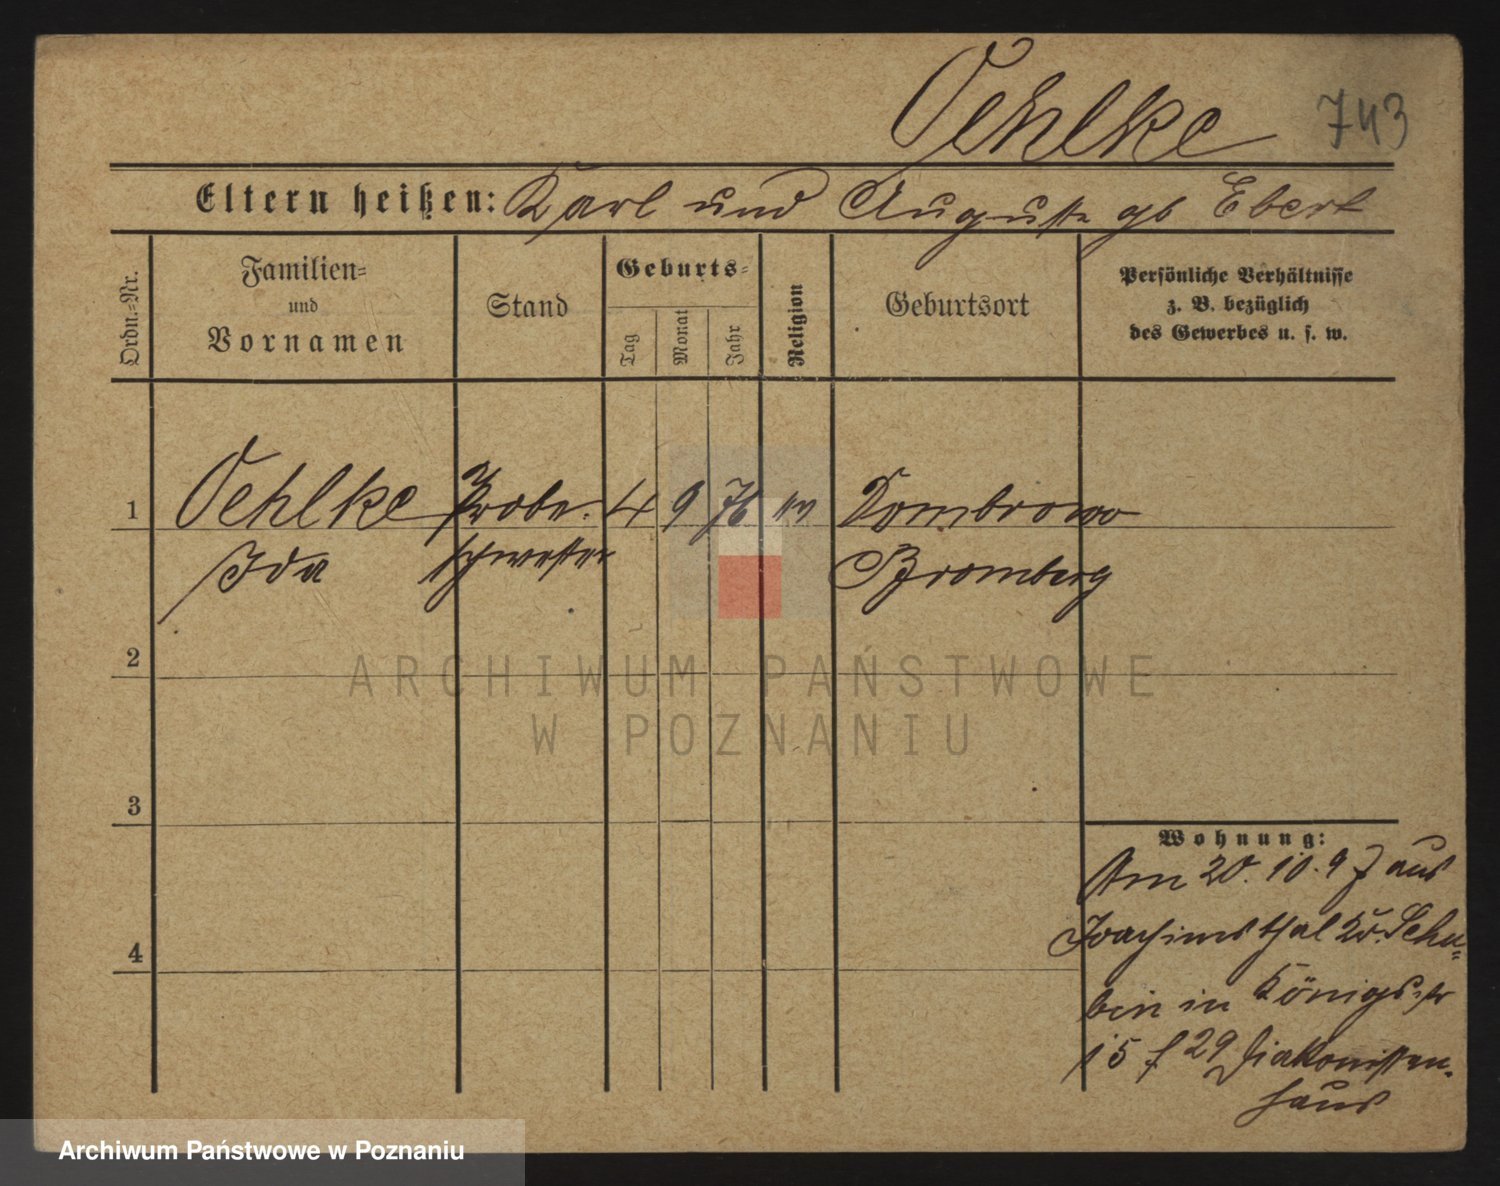 Oehlke 743
Eltern heißen: Karl und Auguste gb Ebert
Ordn.=Nr.
Familien=
und
Vornamen
Stand
Geburts=
Tag
Monat
Jahr
Religion
Geburtsort
Persönliche Verhältnisse
z. B. bezüglich
des Gewerbes u. s. w.
1 Oehlke Probe- 4 9 76 ev Dombrowo
Ida schwester Bromberg
2
3
4
Wohnung:
Am 20.10.97 aus
Joachimsthal Kr. Schu=
bin in Königs-str
15 f 29 Diakonissen-
haus
ARCHIWUM PAŃSTWOWE
W POZNANIU
Archiwum Państwowe w Poznaniu